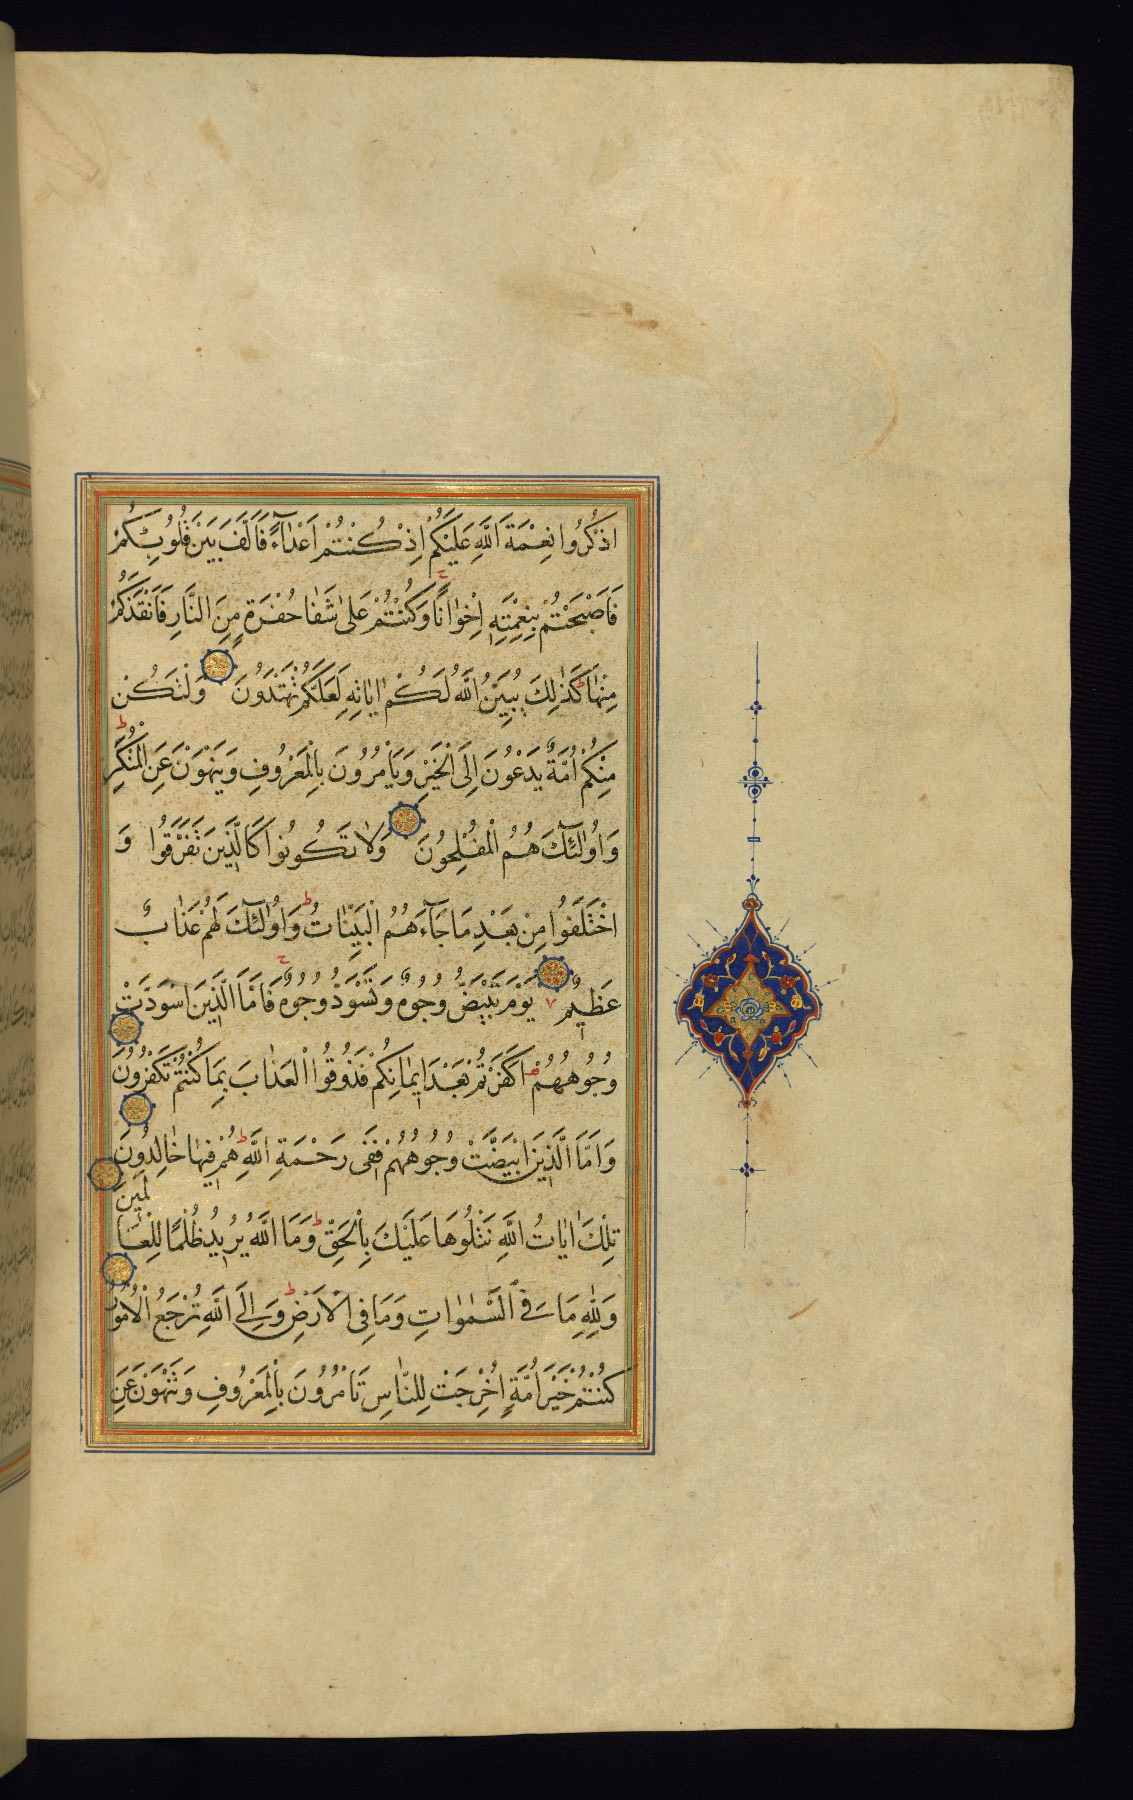 اذْكُرُوا نِعْمَةَ اللَّهِ عَلَيْكُمْ اِذْ كُنْتُمْ اَعْدَآءً فَاَلَّفَ بَيْنَ قُلُوبِكُمْ
فَاَصْبَحْتُمْ بِنِعْمَتِهِ اِخْوَانًا وَكُنْتُمْ عَلٰى شَفَا حُفْرَةٍ مِنَ النَّارِ فَاَنْقَذَكُمْ
مِنْهَا كَذٰلِكَ يُبَيِّنُ اللَّهُ لَكُمْ اٰيَاتِهِ لَعَلَّكُمْ تَهْتَدُونَ وَلْتَكُنْ
مِنْكُمْ اُمَّةٌ يَدْعُونَ اِلَى الْخَيْرِ وَيَاْمُرُونَ بِالْمَعْرُوفِ وَيَنْهَوْنَ عَنِ الْمُنْكَرِ
وَاُولٰئِكَ هُمُ الْمُفْلِحُونَ وَلَا تَكُونُوا كَالَّذِينَ تَفَرَّقُوا وَ
اخْتَلَفُوا مِنْ بَعْدِ مَا جَآءَهُمُ الْبَيِّنَاتُ وَاُولٰئِكَ لَهُمْ عَذَابٌ
عَظِيمٌ يَوْمَ تَبْيَضُّ وُجُوهٌ وَتَسْوَدُّ وُجُوهٌ فَاَمَّا الَّذِينَ اسْوَدَّتْ
وُجُوهُهُمْ اَكَفَرْتُمْ بَعْدَ اِيمَانِكُمْ فَذُوقُوا الْعَذَابَ بِمَا كُنْتُمْ تَكْفُرُونَ
وَاَمَّا الَّذِينَ ابْيَضَّتْ وُجُوهُهُمْ فَفِى رَحْمَةِ اللَّهِ هُمْ فِيهَا خَالِدُونَ
تِلْكَ اٰيَاتُ اللَّهِ نَتْلُوهَا عَلَيْكَ بِالْحَقِّ وَمَا اللَّهُ يُرِيدُ ظُلْمًا لِلْعَالَمِينَ
وَلِلّٰهِ مَا فِى السَّمٰوَاتِ وَمَا فِى الْاَرْضِ وَاِلَى اللَّهِ تُرْجَعُ الْاُمُورُ
كُنْتُمْ خَيْرَ اُمَّةٍ اُخْرِجَتْ لِلنَّاسِ تَاْمُرُونَ بِالْمَعْرُوفِ وَتَنْهَوْنَ عَنِ